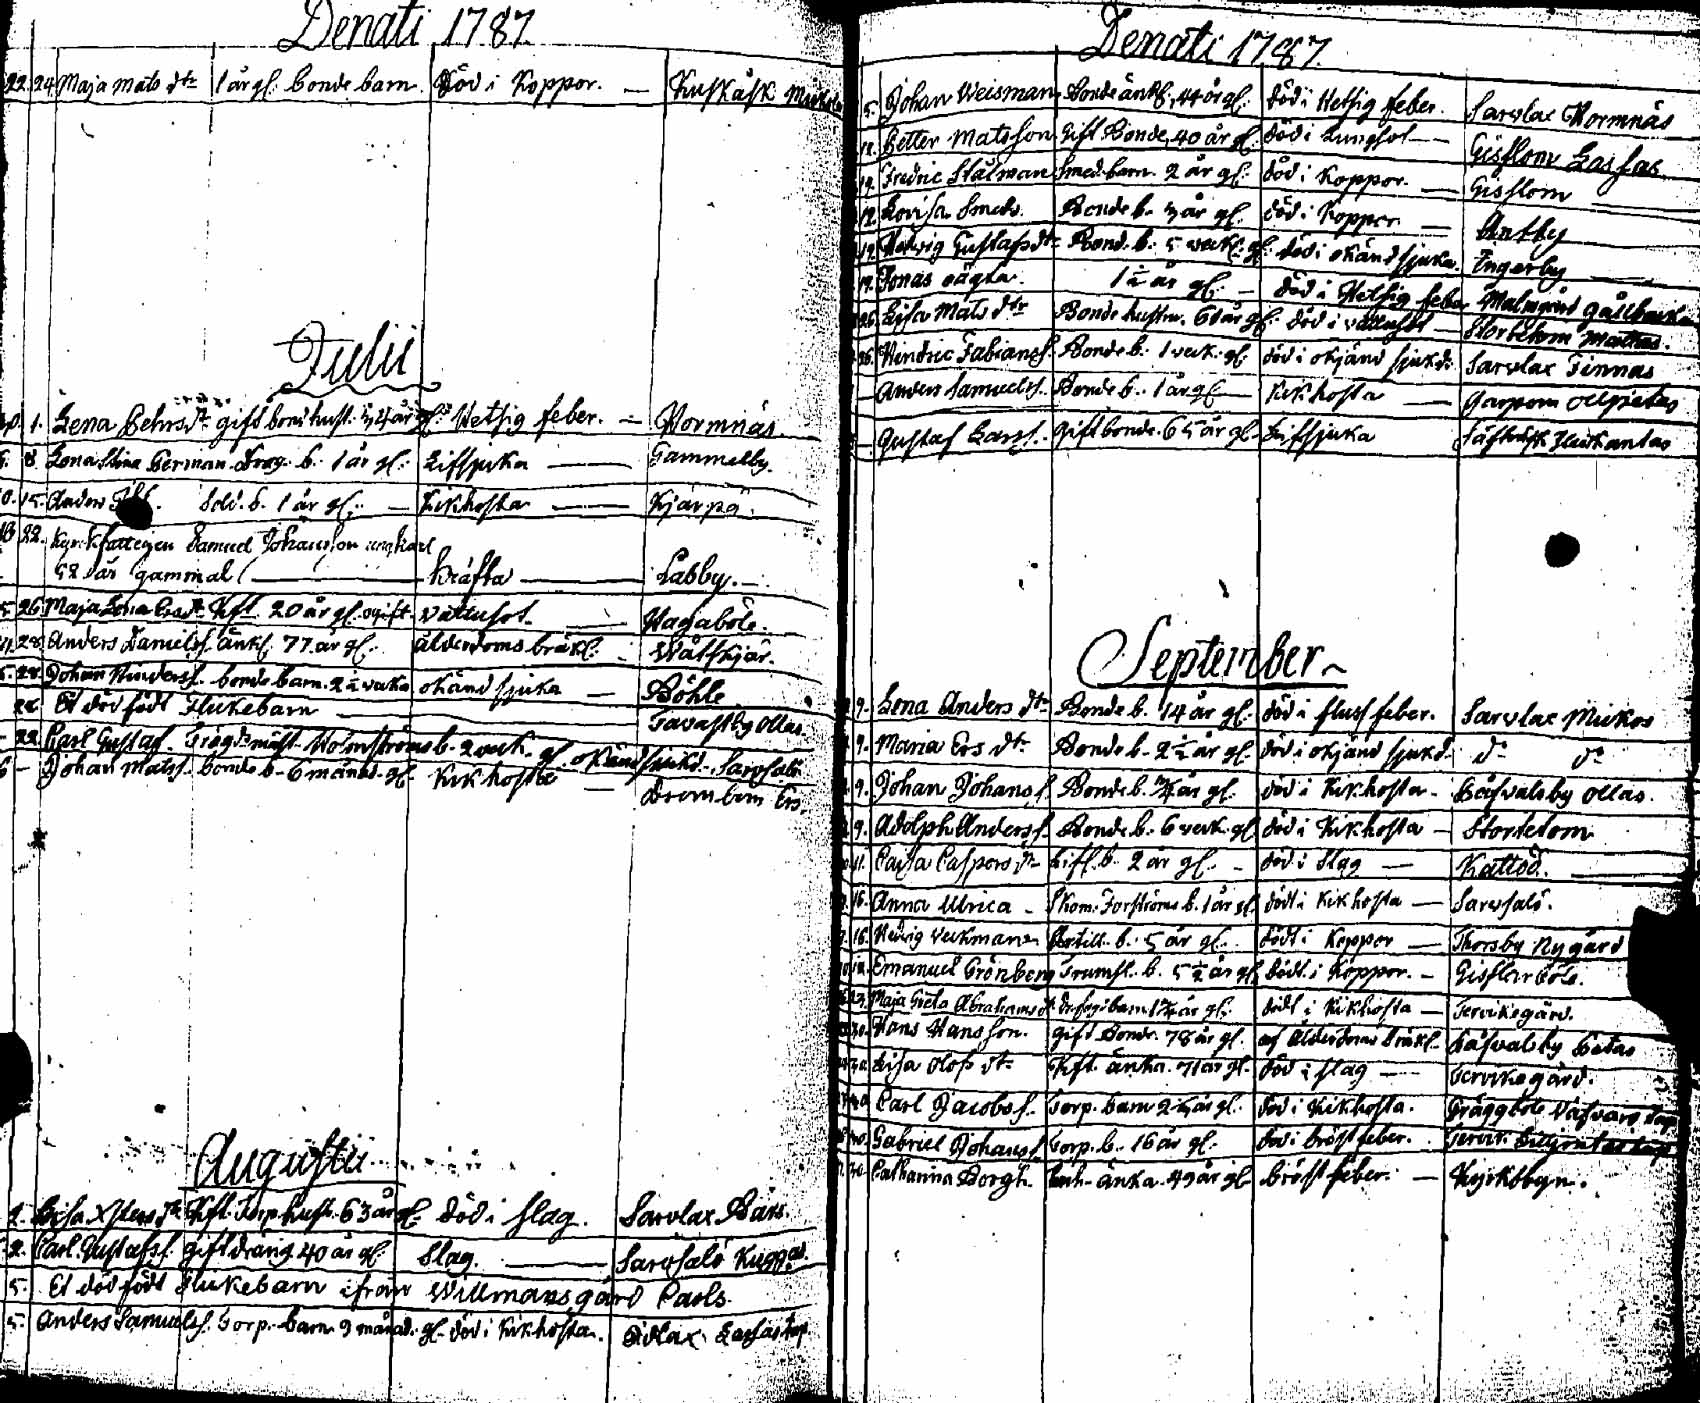 Denati 1787.
22. 24. Maja Mats dtr 1 år gl. bonde barn. död i Koppor. — Kuskåsk Mickels
Julii
1. Lena Pehrs dtr gift bond hust. år gl. Hetsig feber. — Wormnäs.
8. Lena Stina Berman Drag. b. 1 år gl. Lifsjuka — Gammelby.
15. Anders Sold. b. 1 år gl. — Kikhosta — Kjärpä.
18 22. Kyrkfattigen Samuel Johansson ungkarl
52 år gammal — kräfta — Labby. —
26. Maja Lena Ersdtr Kft. 20 år gl. ogift. vattusot. — Hagaböle.
28. Anders Danielss. änkl. 77 år gl. ålderdoms bräkl. — Wåtskjär.
28. Johan Hinderss. bonde barn. 2 1/2 veka okänd sjuka — Böhle
28. Et dödfödt Flickebarn — Tavastby Ollas.
22. Carl Gustaf. Trägd.mäst. Holmströms b. 2 veck. gl. okänd sjukd. Sarvsalö
— Johan Matss. bonde b. 6 månad. gl. Kikhosta — Drombom Ers.
Augustii
2. Lisa dtr Kft. Torp. hust. 63 år gl. död i slag. Sarvlax Bärs.
2. Carl Gustafss. gift dräng 40 år gl. Slag. — Sarvsalö Kuggas.
5. Et dödfödt Flickebarn ifrån Willmans gård Carls.
5. Anders Samuelss. Torp. barn 9 månad. gl. död i Kikhosta. Tidlax Lassas torp
Denati 1787.
5. Johan Weisman Bonde änkl. 44 år gl. död i Hetsig feber. Sarvlax Hormnäs
12. Petter Matsson Gift Bonde, 40 år gl. död i Lungsot — Gislom Lassas
12. Fredric Stålman Smed. barn. 2 år gl. död i Koppor. — Gislom
12. Lovisa Smeds. Bonde b. 3 år gl. död i Koppor — Antby
19. Hedvig Gustafs dtr Bond. b. 5 veck. gl. död i okänd sjuka. Ingerby —
19. Jonas oägta. 1 1/2 år gl. — död i Hetsig feber Malmgård
26. Lisa Mats dtr Bonde hustru. 60 år gl. död i vattusot — Stortetom Mattas.
26. Hindric Fabianss. Bonde b. 1 veck. gl. död i okjänd sjukd. Sarvlax Finnas
— Anders Samuelss. Bonde b. 1 år gl. — Kikhosta — Garpom
— Gustaf Larss. Gift bonde. 65 år gl. Lifsjuka
September
9. Lena Anders dtr Bonde b. 14 år gl. död i fluss feber. Sarvlax Mickos
9. Maria Ers dtr Bonde b. 2 1/2 år gl. död i okjänd sjukd. do do
9. Johan Johanss. Bonde b. 3/4 år gl. död i Kikhosta. Båfvalsby Ollas.
9. Adolph Anderss. Bonde b. 6 veck. gl. död i Kikhosta — Stortetom
11. Caisa Caspers dtr b. 2 år gl. — död i slag — Kattöö. —
16. Anna Ulrica — Skom. Forströms b. 1 år gl. död i Kikhosta — Sarvsalö.
16. Hedvig Veckman Artill. b. 5 år gl. död i Koppor — Thorsby Nygård
Emanuel Grönberg Trumsl. b. 5 1/2 år gl. död i Koppor. — Gislarböle.
23. Maja Greta Abrahams dtr barn 1 3/4 år gl. död i Kikhosta — Tervikegård.
30. Hans Hansson. gift Bonde. 78 år gl. af Ålderdoms bräkl. Båfvalsby Betas
30. Lisa Olofs dtr Kft. änka. 71 år gl. död i slag — Tervikegård.
30. Carl Jacobss. Torp. barn 2 1/2 år gl. död i Kikhosta. Gräggböle
30. Gabriel Johanss. Torp. b. 16 år gl. död i bröst feber. Tervik
30. Catharina Borgh. änka. 49 år gl. bröst feber. — Kyrkobyn.